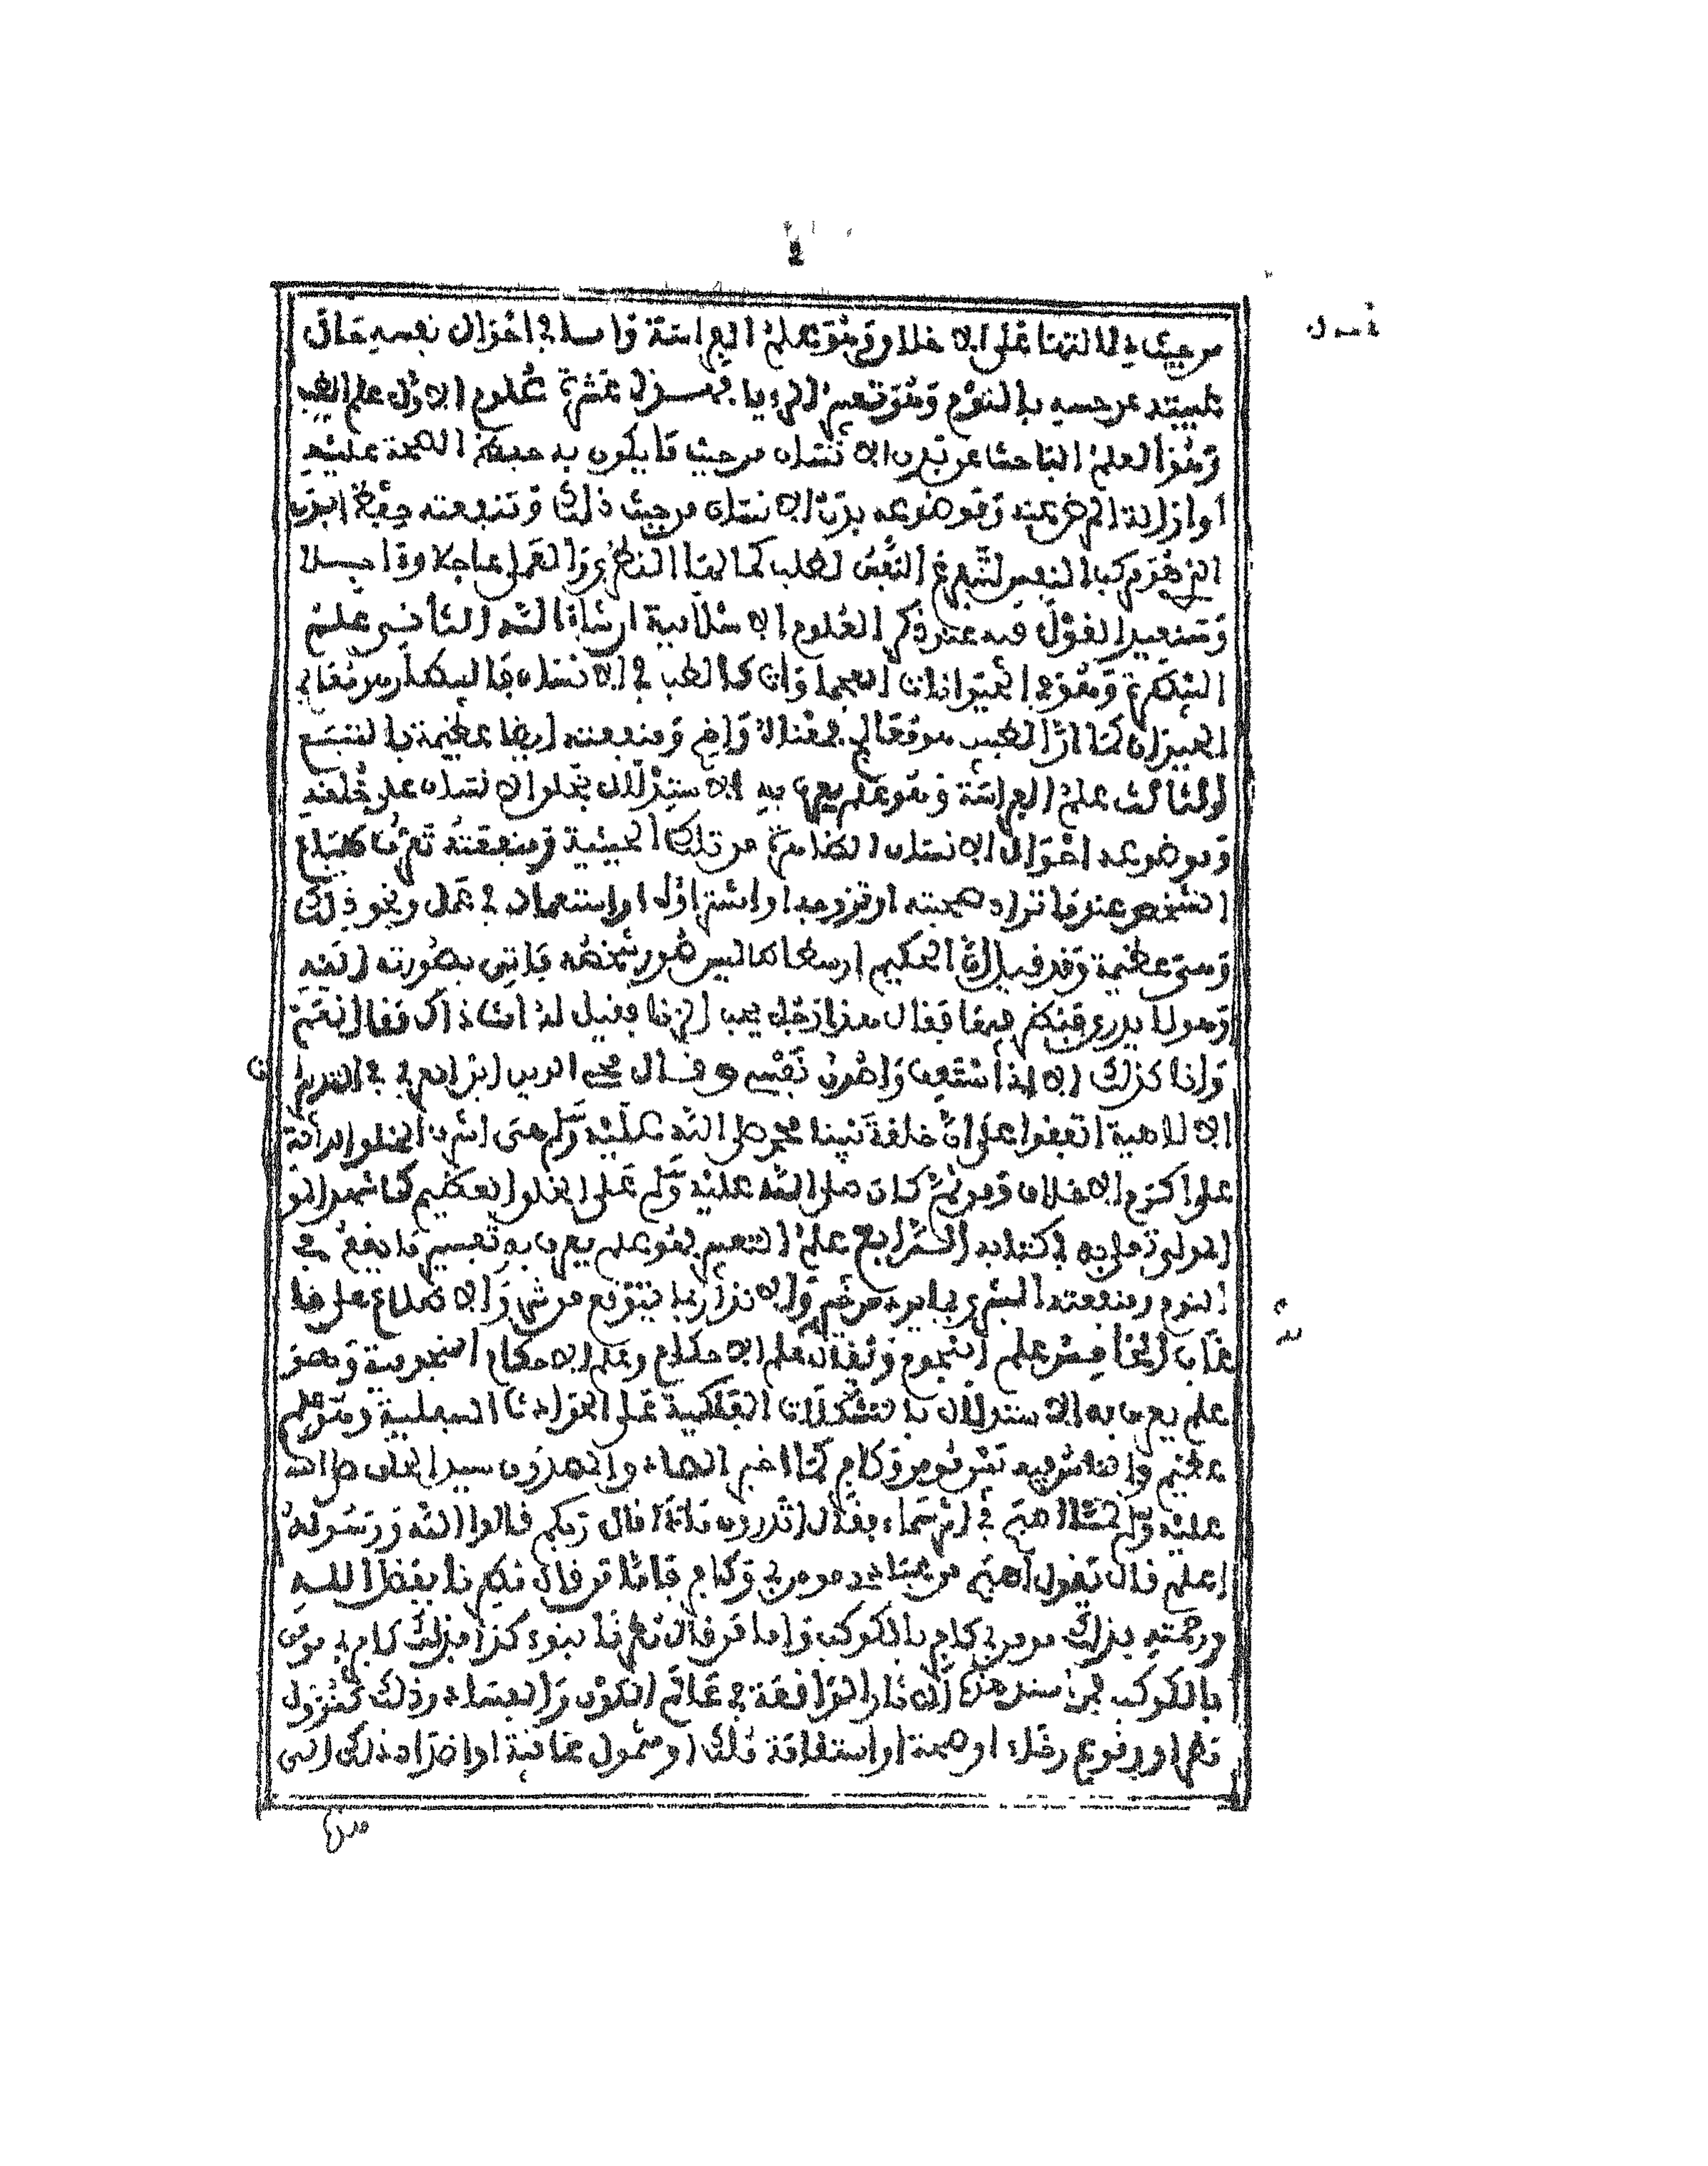 من حيث دلالتها على الاخلاق وهو علم الفراسة واما في احوال نفسه حال
غيبته عن حسه بالنوم وهو تعبير الرؤيا فهذه عشرة علوم الاول علم الطب
وهو العلم الباحث عن بدن الانسان من حيث ما يكون به حفظ الصحة عليه
او ازالة المرض عنه وموضوعه بدن الانسان من حيث ذلك ومنفعته حفظ البدن
الذي هو مركب النفس لتتفرغ النفس لطلب كمالها النظري والعملي عاجلا وءاجلا
وسنعيد القول فيه عند ذكر العلوم الاسلامية ان شاء الله الثاني علم
البيطرة وهو في الحيوانات العجماوات كالطب في الانسان فالبيطار من يعاني
الحيوان كما ان الطبيب من يعالج الانسان ومنفعته ايضا عظيمة بالتتبع
الثالث علم الفراسة وهو علم يعرف به الاستدلال بخلق الانسان على خلقه
وموضوعه احوال الانسان الظاهرة من تلك الحيثية ومنفعته تعرف طباع
الشخص عند ما تراد صحبته او تزوجه او اشتراؤه او استعماله في عمل ونحو ذلك
وهي عظيمة وقد قيل ان الحكيم ارسطاطاليس صور شخصه فاتي بصورته اليه
وهو لا يدري فنظر فيها فقال هذا رجل يحب الزنا فقيل له انت ذاك فقال نعم
وانا كذلك الا اني استعف واصون نفسي وقال محي الدين ابن العربي في التدبيرات
الالاهية اتفقوا على ان خلقة نبينا محمد صلى الله عليه وسلم هي اشرف الخلق الدالة
على اكرم الاخلاق ومن ثم كان صلى الله عليه وسلم على الخلق العظيم كما شهد له
المولى تعالى به في كتابه الرابع علم التعبير وهو علم يعرف به تفسير ما يقع في
النوم ومنفعته البشرى بما يرد من خير والانذار بما يتوقع من شر والاطلاع على ما
غاب الخامس علم النجوم ويقال علم الاحكام وعلم الاحكام النجومية وهو
علم يعرف به الاستدلال بالتشكلات الفلكية على الحوادث السفلية وهو علم
عظيم والناس فيه بين مومن وكافر كما اخبر الصادق المصدوق سيد الخلق صلى الله
عليه وسلم لما اصبح في اثر سماء فقال اتدرون ماذا قال ربكم قالوا الله ورسوله
اعلم قال يقول اصبح من عبادي مومن بي وكافر فاما من قال مطرنا بفضل الله
ورحمته فذلك مومن بي كافر بالكوكب واما من قال مطرنا بنوء كذا فذلك كافر بي مومن
بالكوكب فمن اسند هذه الاثار الواقعة في عالم الكون والفساد وذلك كنزول
مطر او وقوع رخاء او صحة او استقامة ملك او شمول عافية او اضداد ذلك الى